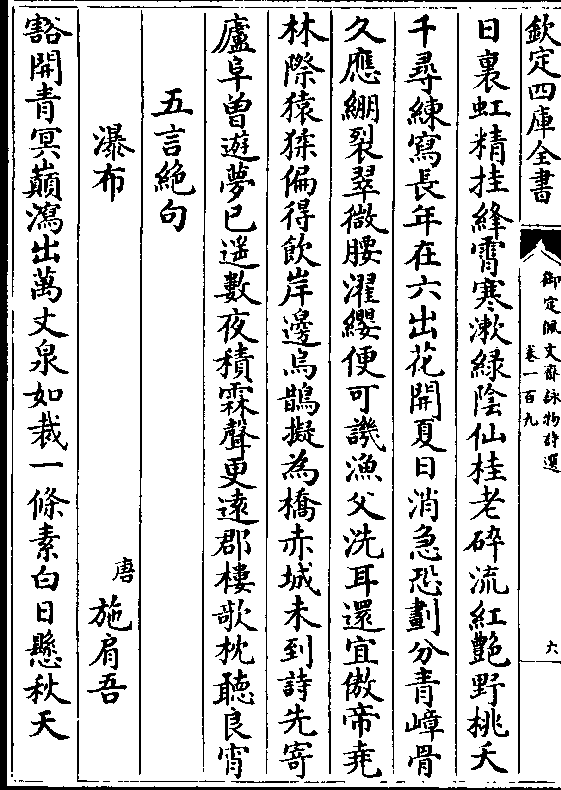 欽定四庫全書
御定佩文齋詠物詩選
卷一百九
六
日裏虹精挂絳霄寒漱綠陰仙桂老碎流紅艷野桃夭
千尋練寫長年在六出花開夏日消急恐劃分青嶂骨
久應繃裂翠微腰濯纓便可譏漁父洗耳還宜傲帝堯
林際猿猱偏得飲岸邊烏鵲擬為橋赤城未到詩先寄
廬阜曾遊夢已遥數夜積霖聲更遠郡樓欹枕聽良宵
五言絕句
瀑布
唐 施肩吾
豁開青冥巔瀉出萬丈泉如裁一條素白日懸秋天